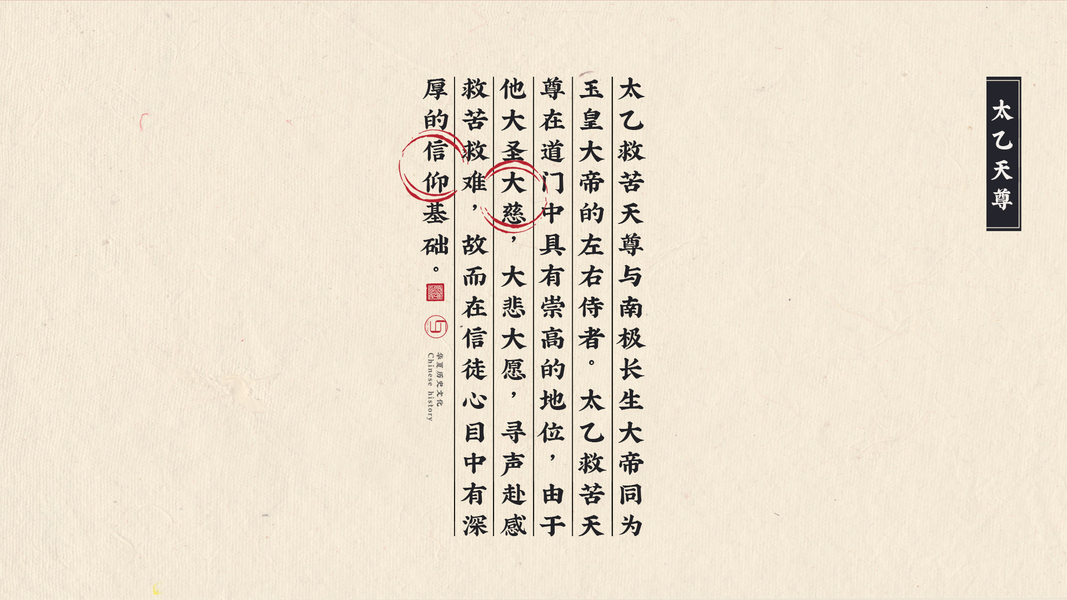 太乙天尊
太乙救苦天尊与南极长生大帝同为
玉皇大帝的左右侍者。太乙救苦天
尊在道门中具有崇高的地位，由于
他大圣大慈，大悲大愿，寻声赴感
救苦救难，故而在信徒心目中有深
厚的信仰基础。
华夏历史文化
Chinese history